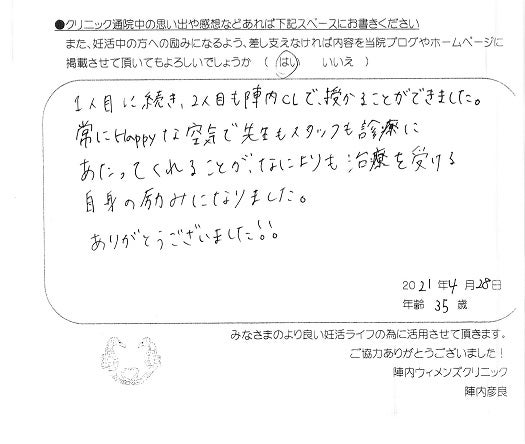 ●クリニック通院中の思い出や感想などあれば下記スペースにお書きください
また、妊活中の方への励みになるよう、差し支えなければ内容を当院ブログやホームページに
掲載させて頂いてもよろしいでしょうか（ はい　いいえ ）
1人目に続き、2人目も陣内CLで、授かることができました。
常にHappyな空気で先生もスタッフも診療に
あたってくれることが、なによりも治療を受ける
自身の励みになりました。
ありがとうございました!!。
2021年4月28日
年齢 35 歳
みなさまのより良い妊活ライフの為に活用させて頂きます。
ご協力ありがとうございました！
陣内ウィメンズクリニック
陣内彦良